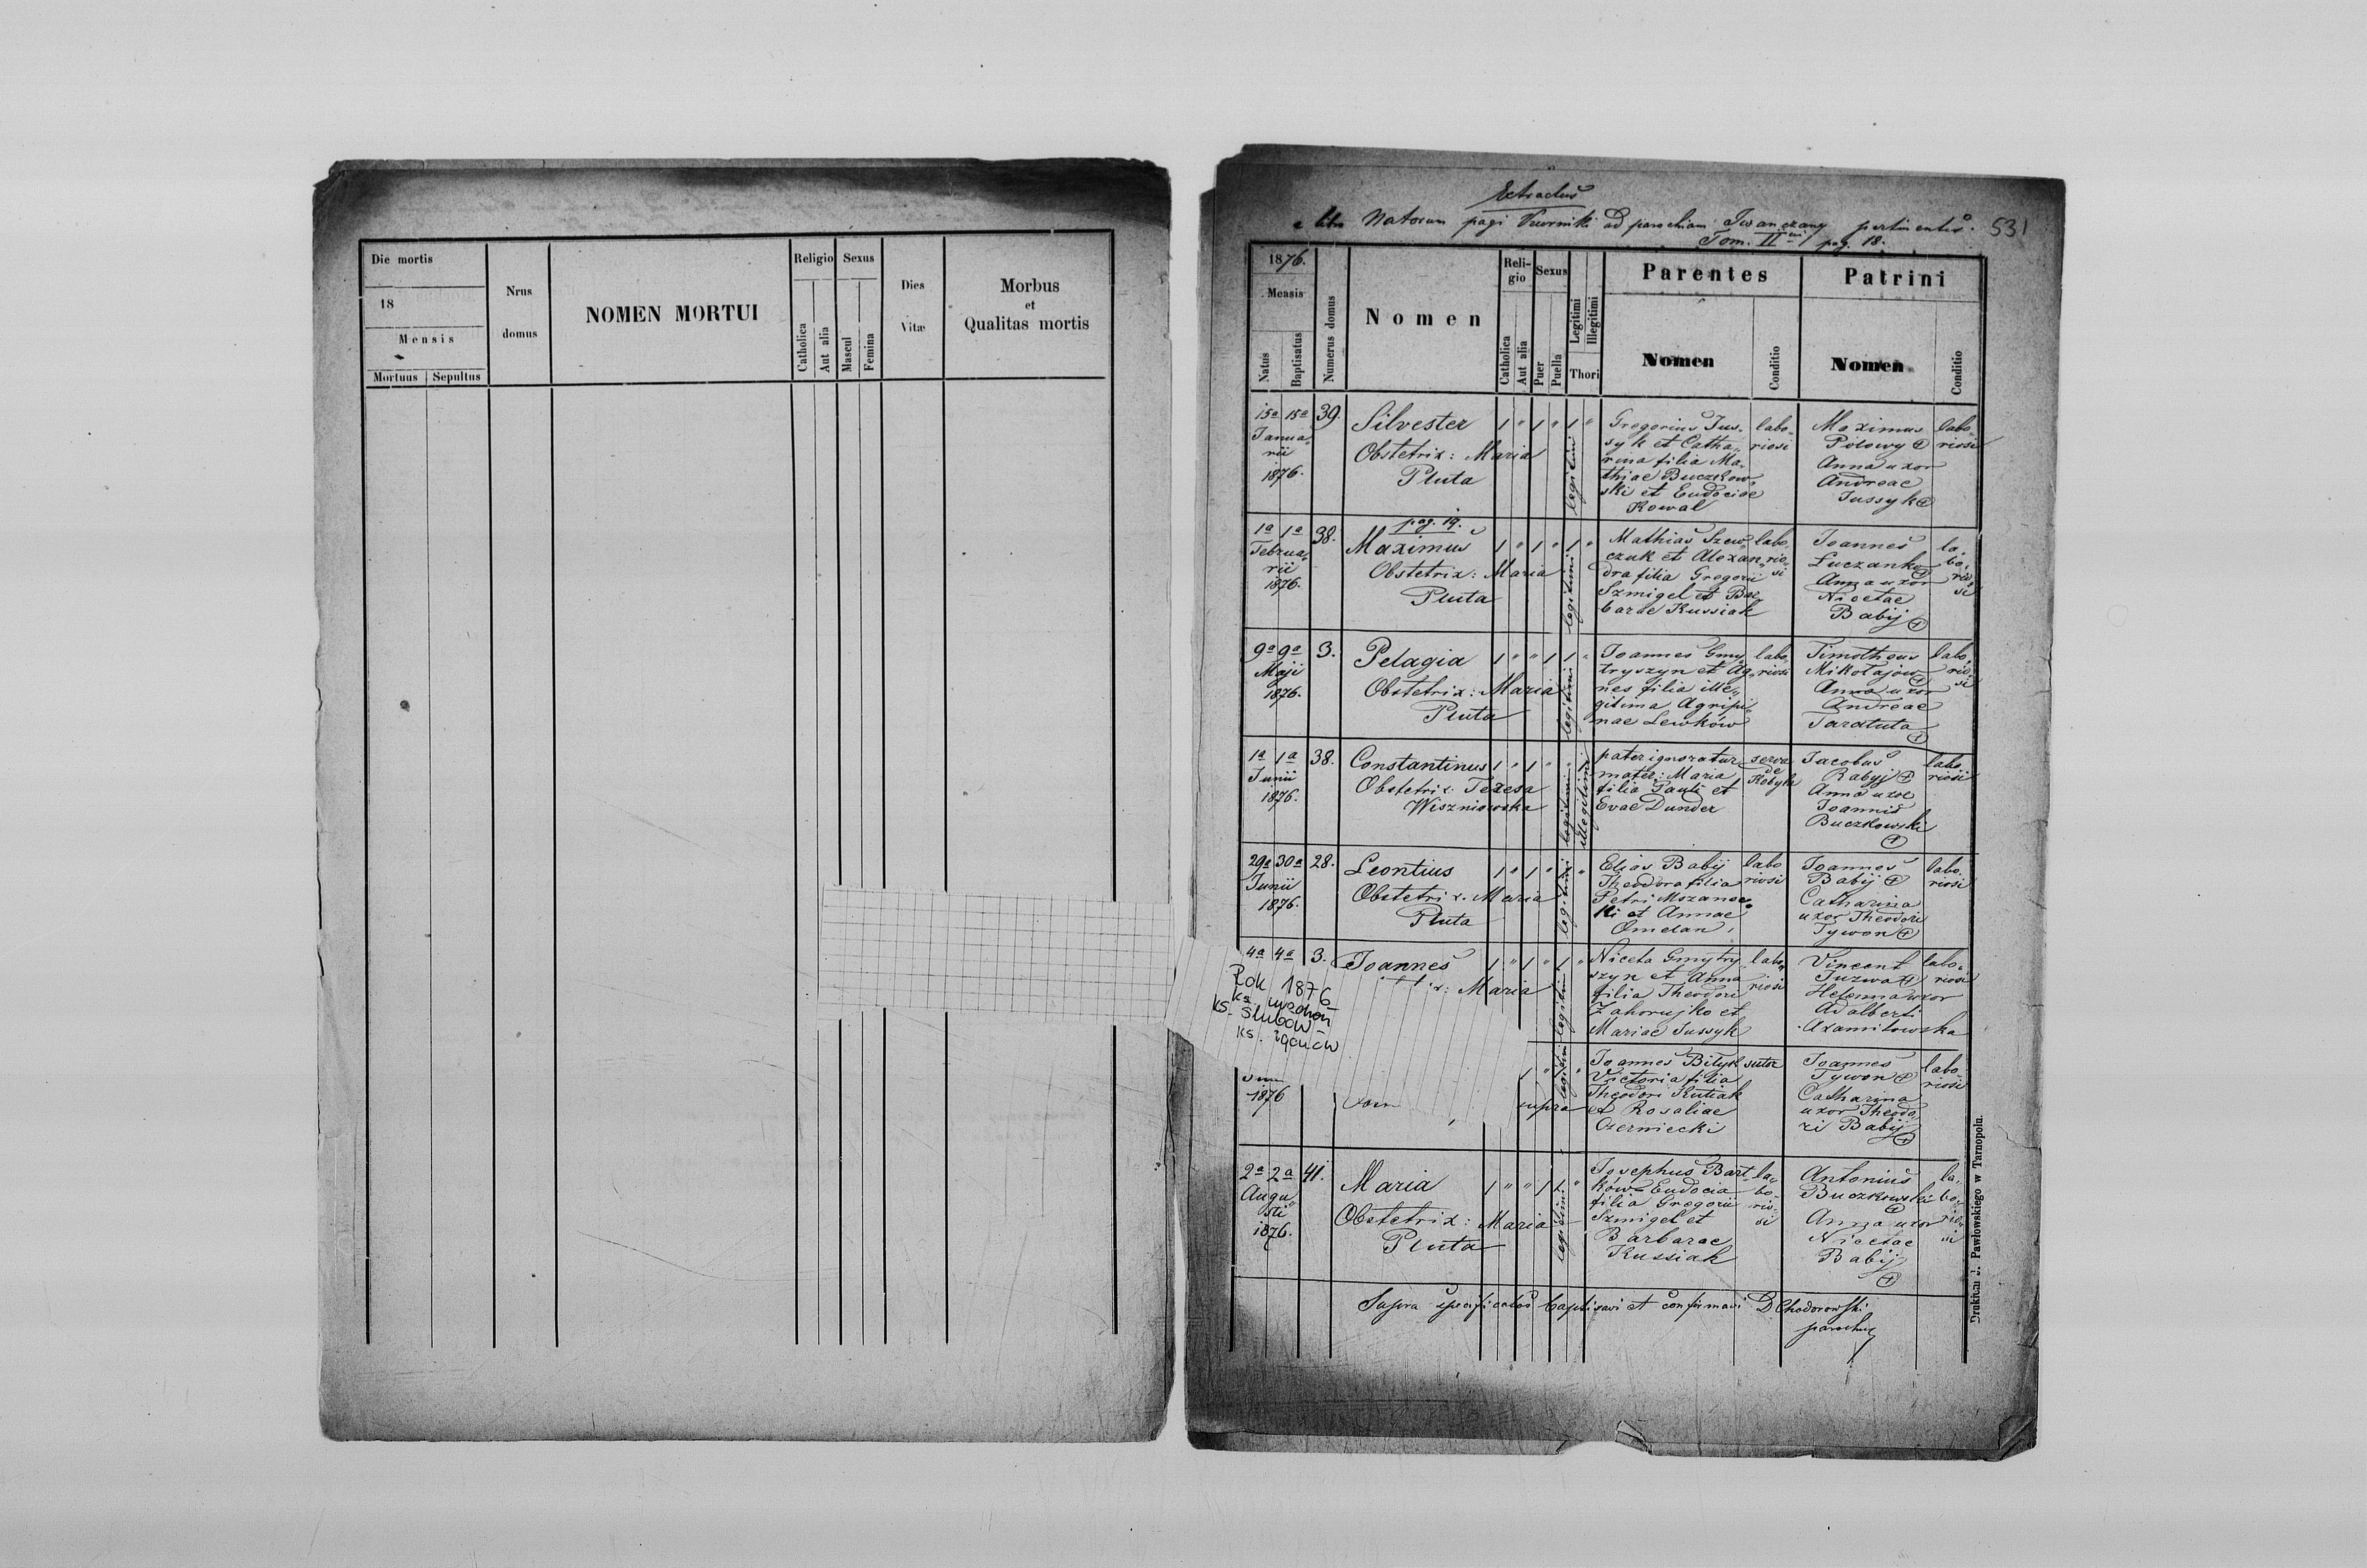 Die mortis
18
Mensis
Mortuus Sepultus
Nrus
domus
NOMEN MORTUI
Religio
Catholica
Aut alia
Sexus
Mascul
Femina
Dies
Vitæ
Morbus
et
Qualitas mortis
Extractus
e libro Natorum pagi ad parochiam Iwanczany pertinentis. 531
Tom. II pag. 18.
1876.
Mensis
Natus
Baptisatus
Numerus domus
Nomen
Reli-
gio
Catholica
Aut alia
Sexus
Puer
Puella
Legitimi
Illegitimi
Thori
Parentes
Nomen
Conditio
Patrini
Nomen
Conditio
15a 15a
Janua„
rii
1876.
39.
Silvester
Obstetrix: Maria
Pluta
1 " 1 " 1 "
legitimi
Gregorius Jus„
syk et Catha„
rina filia Ma„
thiae Buczkow„
ski et Eudociae
Kowal
labo„
riosi
Maximus
Polowy
Anna uxor
Andreae
Jussyk
labo„
riosi
1a 1a
Februa„
rii
1876.
38.
pag. 19.
Maximus
Obstetrix: Maria
Pluta
1 " 1 " 1 "
legitimi
Mathias Szew„
czuk et Alexan„
dra filia Gregorii
Szmigel et Bar„
barae Kussiak
labo„
rio„
si
Joannes
Luczanko
Anna uxor
Nicetae
Babij
la„
bo„
rio„
si
9a 9a
Maji
1876.
3.
Pelagia
Obstetrix: Maria
Pluta
1 " " 1 1 "
legitimi
Joannes Gmy„
tryszyn et Ag„
nes filia ille„
gitima Agripi„
nae Lewków
labo„
riosi
Timotheus
Mikołajow
Anna uxor
Andreae
Taratuta
labo„
rio„
si
1a 1a
Junii
1876.
38.
Constantinus
Obstetrix: Teresa
Wiszniowska
1 " 1 "
illegitimi
pater ignoratur
mater: Maria
filia Pauli et
Evae Dunder
serva
de
Kobyla
Jacobus
Babyj
Anna uxor
Joannis
Buczkowski
labo
riosi
29a 30a
Junii
1876.
28.
Leontius
Obstetrix: Maria
Pluta
1 " 1 " "
legitimi
Elias Babij
Theodora filia
Petri Mozanow
ski et Annae
Omelan
labo
riosi
Joannes
Babij
Catharina
uxor Theodori
Tywon
labo
riosi
4a 4a
3.
Joannes
Maria
1 " 1 " 1 "
legitimi
Niceta Gmytry„
szyn et Anna
filia Theodori
Zahorujko et
Mariae Jussyk
labo„
riosi
Vincent
Juzwa
Helenna uxor
Adalberti
Axamitowska
labo„
riosi
Rok 1876
ks urodzeń
ks. ślubów
ks. zgonów
1876
supra
legitimi
Joannes Bilyk
Victoria filia
Theodori Kutiak
et Rosaliae
Czerniecki
sutor
Joannes
Tywon
Catharina
uxor Theodo„
ri Babij
labo
riosi
2a 2a
Augu„
sti
1876.
41.
Maria
Obstetrix: Maria
Pluta
1 " " 1 1 "
legitimi
Josephus Bart„
ków Eudocia
filia Gregorii
Szmigel et
Barbarae
Kussiak
la„
bo„
rio„
si
Antonius
Buczkowski
Anna uxor
Nicetae
Babij
la„
bo„
rio„
si
Supra specificatos baptisavi et confirmavi D Chodorowski
parochus
Drukiem J. Pawłowskiego w Tarnopolu.